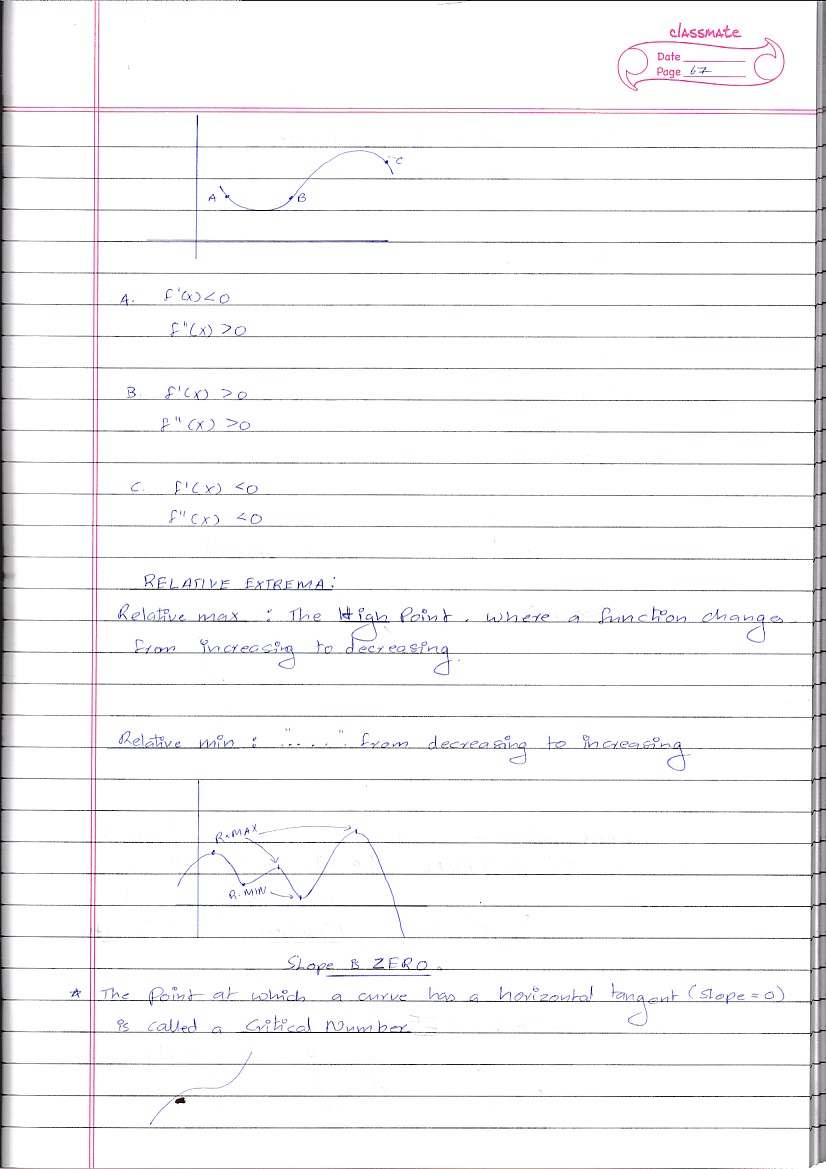 classmate
Date
Page 67
C
A
B
A. f'(x)<0
f''(x) >0
B. f'(x) >0
f''(x) >0
C. f'(x) <0
f''(x) <0
RELATIVE EXTREMA:
Relative max : The High Point. where a function changes
from increasing to decreasing.
Relative min : "....." from decreasing to increasing
R.MAX
R.MIN
Slope is ZERO.
* The point at which a curve has a horizontal tangent (slope = 0)
is called a Critical Number